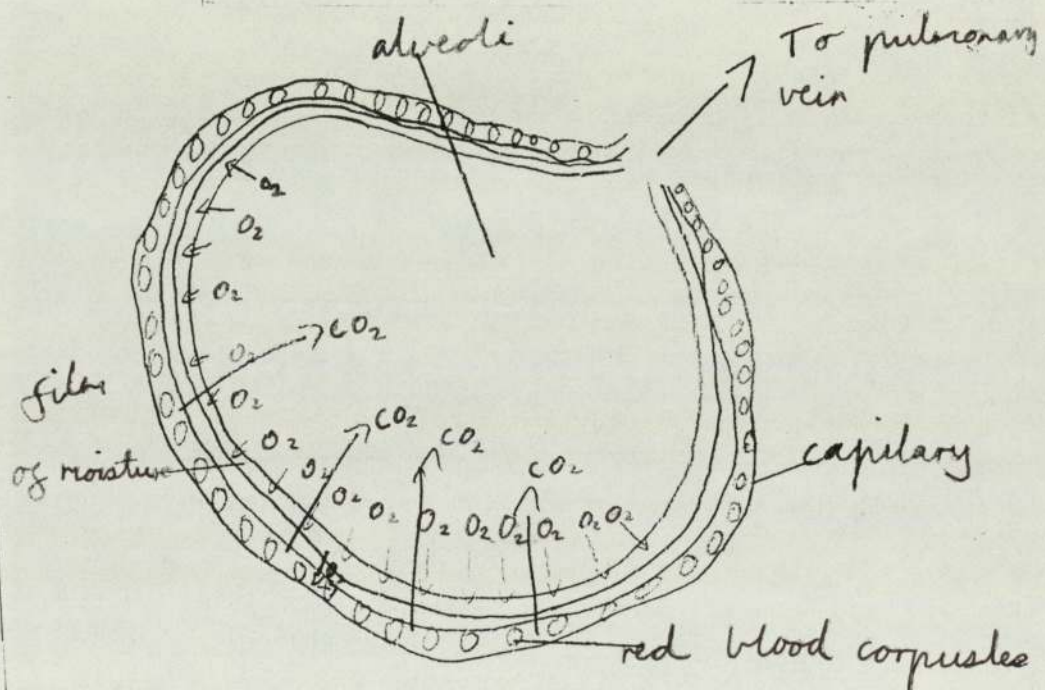 alveoli
To pulmonary
vein
O2
O2
O2
O2
CO2
O2
O2
film
of moisture
O2
O2
CO2
CO2
CO2
O2
O2
O2
O2
O2
O2
O2
O2
capilary
red blood corpustes